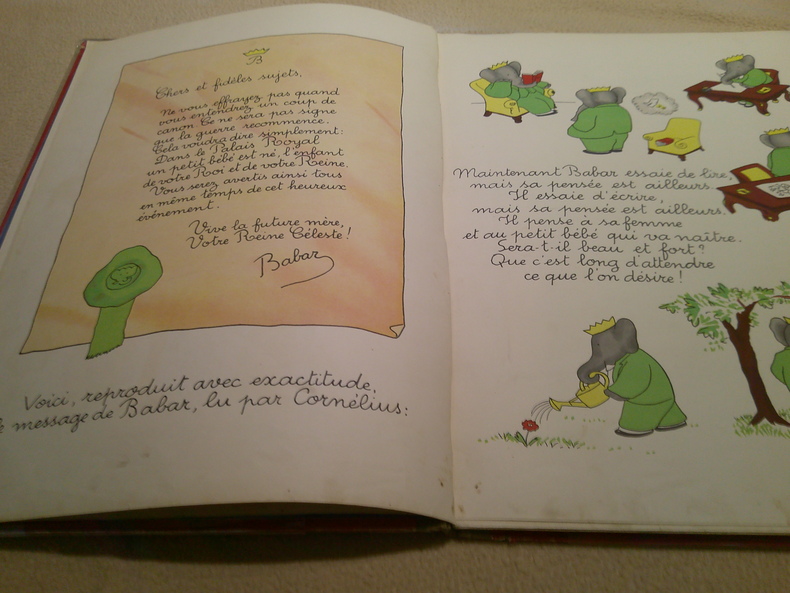 B
Chers et fidèles sujets,
Ne vous effrayez pas quand
vous entendrez un coup de
canon. Ce ne sera pas signe
que la guerre recommence.
Cela voudra dire simplement:
Dans le Palais Royal
un petit bébé est né, l'enfant
de votre Roi et de votre Reine.
Vous serez avertis ainsi tous
en même temps de cet heureux
événement.
Vive la future mère,
Votre Reine Céleste!
Babar
Voici, reproduit avec exactitude,
le message de Babar, lu par Cornélius:
Maintenant Babar essaie de lire;
mais sa pensée est ailleurs.
Il essaie d'écrire,
mais sa pensée est ailleurs.
Il pense à sa femme
et au petit bébé qui va naître.
Sera-t-il beau et fort?
Que c'est long d'attendre
ce que l'on désire!